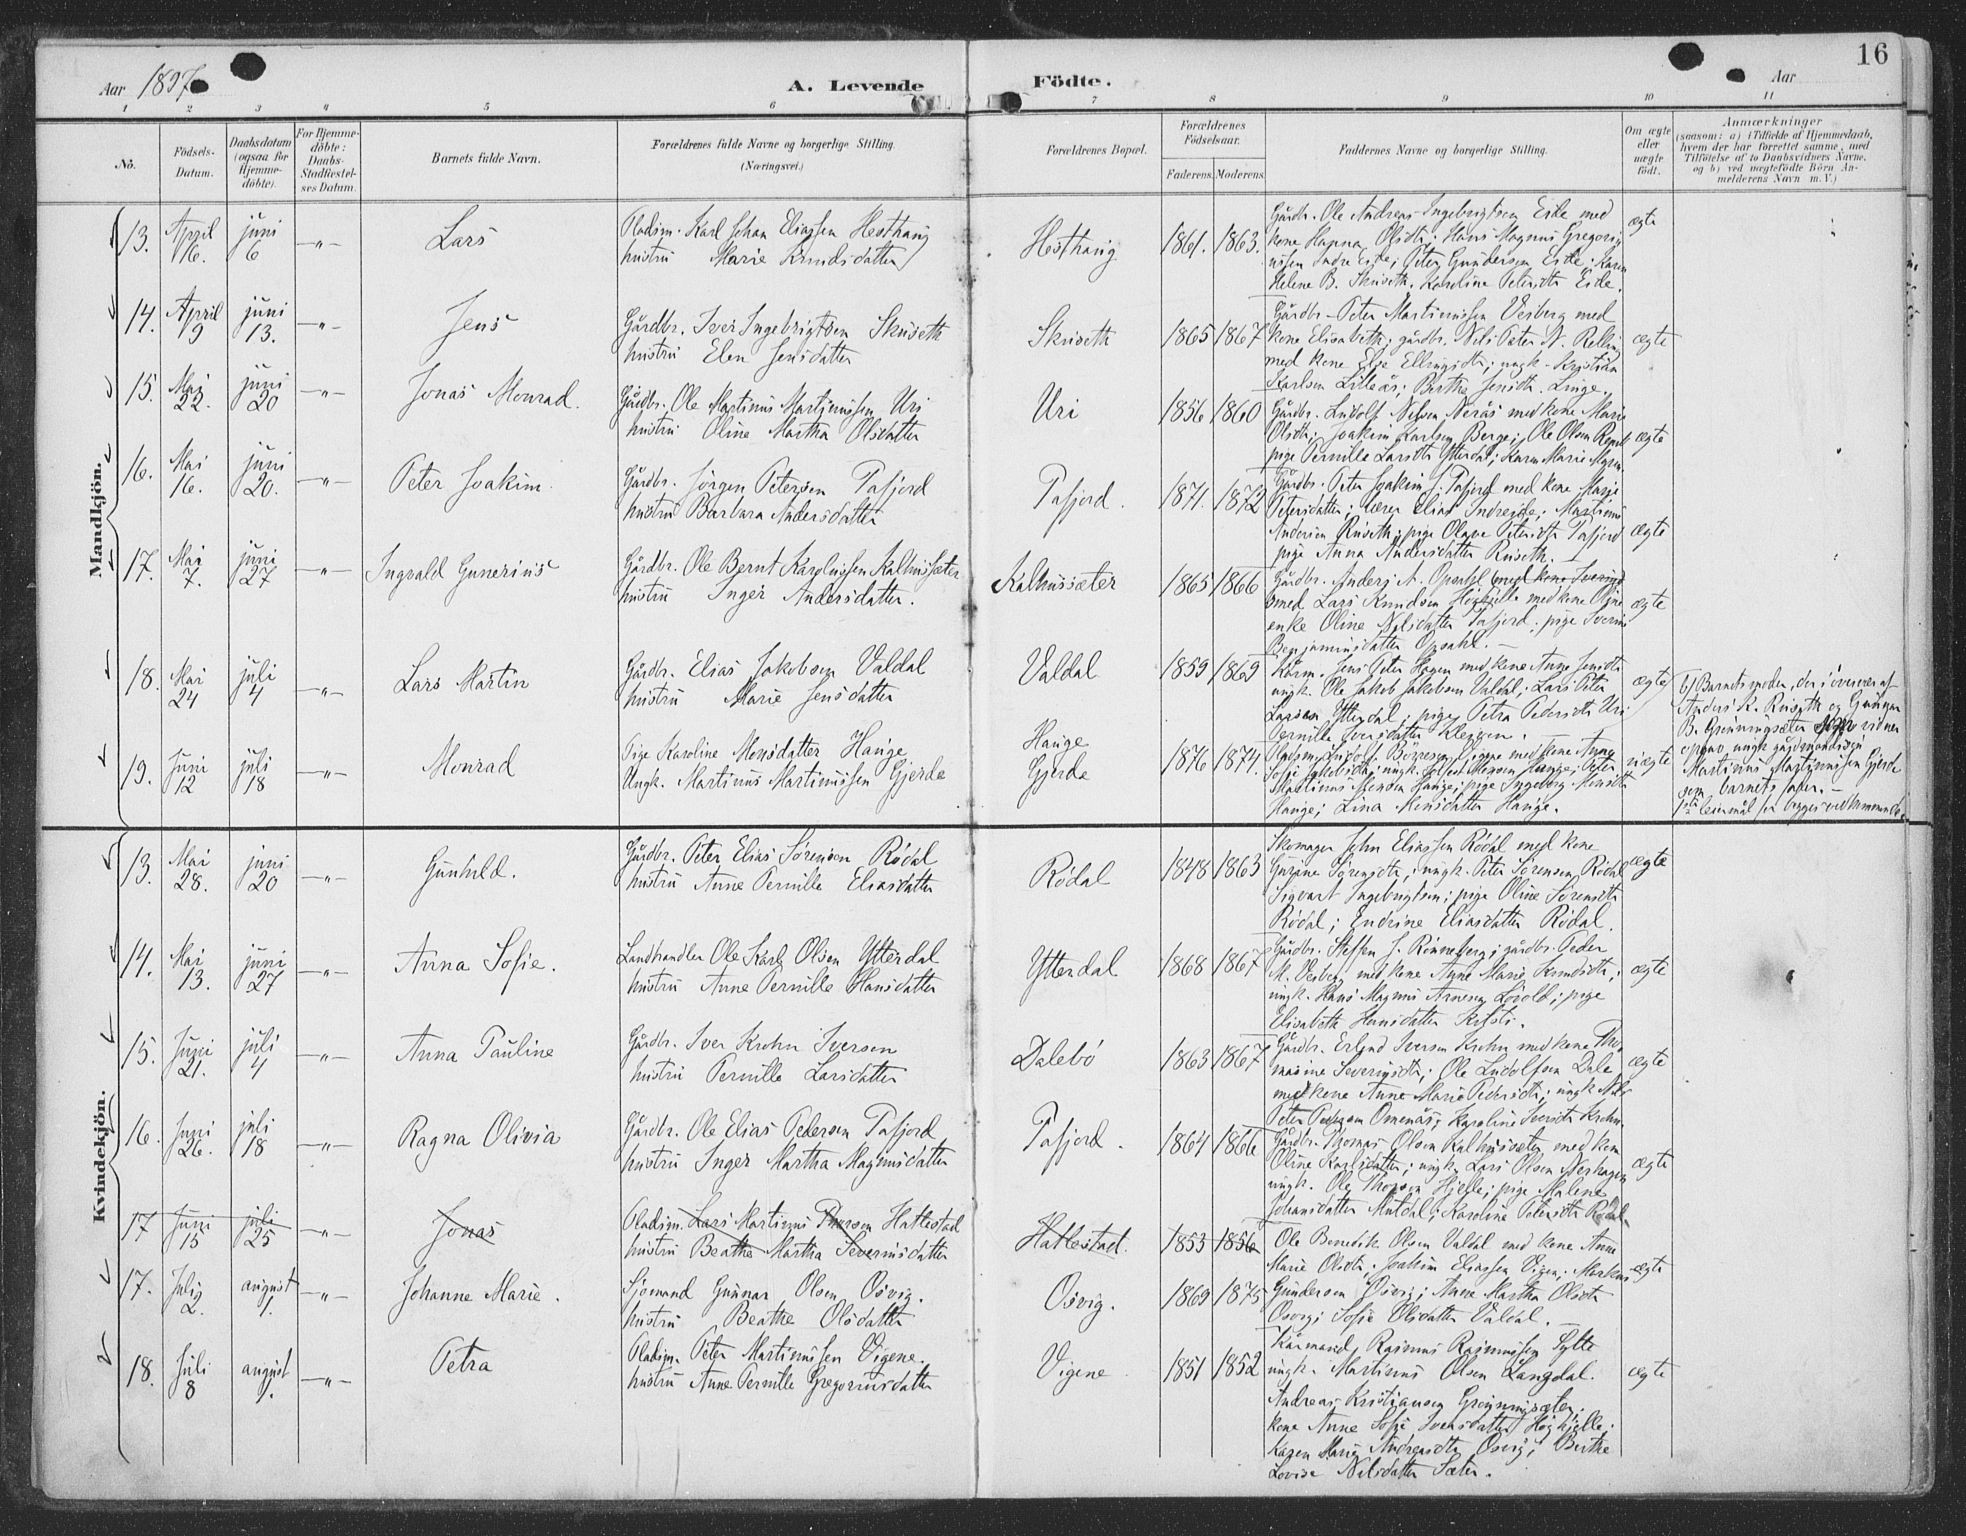 Aar 1897
A. Levende Födte.
Aar
16
1 2 3 4 5 6 7 8 9 10 11
No.
Födsels-Datum.
Daabsdatum (ogsaa for Hjemmedöbte).
For Hjemmedöbte: Daabs-Stadfæstelses Datum.
Barnets fulde Navn.
Forældrenes fulde Navne og borgerlige Stilling.
(Næringsvei.)
Forældrenes Bopæl.
Forældrenes Födselsaar.
Faderens. Moderens.
Faddernes Navne og borgerlige Stilling.
Om ægte eller uægte födt.
Anmærkninger
(saasom: a) i Tilfælde af Hjemmedaab, hvem der har forrettet samme, med Tilföielse af to Daabsvidners Navne, og b) ved uægtefödte Börn Anmelderens Navn m. V.)
Mandkjön.
13. April 16. juni 6 —„— Lars
Pladsm. Karl Johan Eliassen Hesthaug
hustru Marie Knudsdatter
Hesthaug 1861. 1863.
Gårdbr. Ole Andreas Ingebrigtsen Eide med
kone Hanna Olsdtr; Hans Magnus Gregorius
Indre Eide; Peter Gundersen Eide; Karen
Helene B. Skuseth. Karoline Petersdtr Eide.
ægte
14. April 9 juni 13. —„— Jens
Gårdbr. Iver Ingebrigtsen Skuseth
hustru Elen Jensdatter
Skuseth 1865 1867
Gårdbr. Peter Martinussen Veiberg med
kone Elisabeth; gårdbr. Nils Peter N. Relling
med kone Else Ellingsdtr; ungk. Kristian
Karlsen Lilleås; Berthe Jensdtr. Linge.
ægte
15. Mai 22. juni 20 —„— Jonas Monrad.
Gårdbr. Ole Martinus Martinussen Uri
hustru Oline Martha Olsdatter
Uri 1856 1860
Gårdbr. Ludolf Nilsen Nerås med kone Marie
Olsdtr; Joakim Karlsen Berge; Ole Olsen
pige Pernille Larsdtr Ytterdal; Karen Marie
ægte
16. Mai 16. juni 20. —„— Peter Joakim.
Gårdbr. Jörgen Petersen Tafjord
hustru Barbara Andersdatter
Tafjord. 1871. 1872
Gårdbr. Peter Joakim J. Tafjord med kone Marie
Petersdatter; lærer Elias Indreeide; Martinus
Andersen Ruseth; pige Olave Petersdtr Tafjord
pige Anna Andersdatter Ruseth.
ægte
17. Mai 7. juni 27 —„— Ingvald Gunerius
Gårdbr. Ole Bernt Karolussen Kalhussæter
hustru Inger Andersdatter.
Kalhussæter 1865 1866
Gårdbr. Anders A. Opsahl med kone
Smed Lars Knudsen Høgkjelle med kone Oline
enke Oline Nilsdatter Tafjord; pige
Benjaminsdatter Opsahl. —
ægte
18. Mai 24 juli 4 —„— Lars Martin
Gårdbr. Elias Jakobsen Valdal
hustru Marie Jensdatter
Valdal 1859 1869
Kårm. Jens Peter Hagen med kone Anne Jensdtr
ungk. Ole Jakob Jakobsen Valdal; Lars Peter
Larsen Ytterdal; pige Petra Pedersdtr Uri
Pernille Iversdatter Kleppen.
ægte
19. Juni 12 juli 18 —„— Monrad
Pige Karoline Monsdatter Hauge
Ungk. Martinus Martinussen Gjerde
Hauge
Gjerde 1876 1874.
Pladsm. Ludolf Börresen Vigene med kone Anne
Sofie Jakobsdtr; ungk. Hauge; Peter
Martinus Monsen Hauge; pige Ingeborg Monsdtr
Hauge; Lina Monsdatter Hauge.
uægte
b) Barnets moder, der i overvær af
Anders K. Ruseth og Gunnar
B. Grönningsæter vidner
opgav ungk. gårdmandssøn
Martinus Martinussen Gjerde
som barnets fader. —
1ste leiermål for begges vedkommende.
Kvindekjön.
13. Mai 28. juni 20 —„— Gunhild.
Gårdbr. Peter Elias Sørensen Rödal
hustru Anne Pernille Eliasdatter
Rödal 1848 1863
Skomager John Eliassen Rödal med kone
Gurine Sørensdtr, ungk. Peter Sørensen Rödal
Sigvart Ingebrigtsen; pige Oline Sørensdtr
Rödal; Endrine Eliasdatter Rödal.
ægte
14. Mai 13. juni 27 —„— Anna Sofie.
Landhandler Ole Karl Olsen Ytterdal
hustru Anne Pernille Hansdatter
Ytterdal 1868 1867
Gårdbr. Steffen J. Rönneberg; gårdbr. Peder
M. Veiberg med kone Anne Marie Knudsdtr;
ungk. Hans Magnus Arnesen Lövold; pige
Elisabeth Hansdatter
ægte
15. Juni 21. juli 4 —„— Anna Pauline
Gårdbr. Iver Krohn Iversen
hustru Pernille Larsdatter
Dalebö 1863 1867
Gårdbr. Erlend Iversen Krohn med kone Tho-
masine Severinsdtr; Ole Ludolfsen Dale
med kone Anne Marie Pedersdtr; ungk. Nils
Peter Pedersen Omenås; Karoline Iversdtr Krohn.
ægte
16. Juni 26. juli 18 —„— Ragna Olivia
Gårdbr. Ole Elias Pedersen Tafjord
hustru Inger Martha Magnusdatter
Tafjord. 1864 1866
Gårdbr. Thomas Olsen Kalhussæter med kone
Oline Karlsdatter; ungk. Lars Olsen Nerhagen
ungk. Ole Thorsen Hjelle; pige Malene
Johansdatter Muldal; Karoline Petersdtr Rödal.
ægte
17 Juni 15 juli 25 —„— Jonas
Pladsm. Lars Martinus Thorsen Hattestad
hustru Beathe Martha Severinsdatter
Hattestad. 1853 1856
17. Juli 2. august 1. —„— Johanne Marie.
Sjømand Gunnar Olsen Osvig.
hustru Beathe Olsdatter
Osvig. 1869 1875
Ole Benedik Olsen Valdal med kone Anne
Marie Olsdtr. Joakim Eliassen Vigen; Markus
Gundersen Osvig; Anne Martha Olsdtr
Osvig; Sofie Olsdatter Valdal. —
ægte
18. Juli 8 august 1. —„— Petra
Pladsm. Peter Martinussen Vigene.
hustru Anne Pernille Gregoriusdatter
Vigene 1851 1852
Kårmand Rasmus Rasmussen Sylte
ungk. Martinus Olsen Langdal.
Andreas Kristiansen Grönningsæter.
kone Anne Sofie Iversdatter Høgkjelle;
Karen Marie Andreasdtr Osvig; Berthe
Lovise Nilsdatter Sæter.
ægte